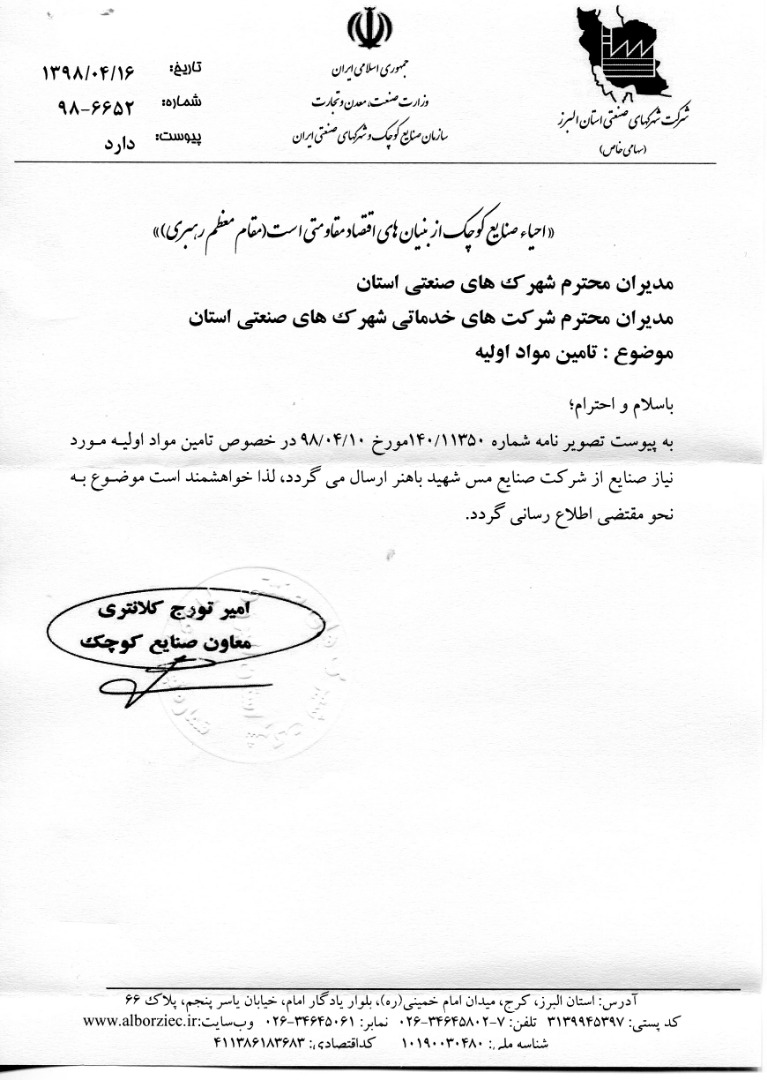 شرکت شهرکهای صنعتی استان البرز
(سهامی خاص)
جمهوری اسلامی ایران
وزارت صنعت، معدن و تجارت
سازمان صنایع کوچک و شهرکهای صنعتی ایران
تاریخ: ۱۳۹۸/۰۴/۱۶
شماره: ۹۸-۶۶۵۲
پیوست: دارد
«احیاء صنایع کوچک از بنیان های اقتصاد مقاومتی است(مقام معظم رهبری)»
مدیران محترم شهرک های صنعتی استان
مدیران محترم شرکت های خدماتی شهرک های صنعتی استان
موضوع : تامین مواد اولیه
باسلام و احترام؛
به پیوست تصویر نامه شماره ۱۴۰/۱۱۳۵۰مورخ ۹۸/۰۴/۱۰ در خصوص تامین مواد اولیه مورد
نیاز صنایع از شرکت صنایع مس شهید باهنر ارسال می گردد، لذا خواهشمند است موضوع به
نحو مقتضی اطلاع رسانی گردد.
امیر تورج کلانتری
معاون صنایع کوچک
آدرس: استان البرز، کرج، میدان امام خمینی(ره)، بلوار یادگار امام، خیابان یاسر پنجم، پلاک ۶۶
کد پستی: ۳۱۳۹۹۴۵۳۹۷ تلفن: ۷-۳۴۶۴۵۸۰۲-۰۲۶ نمابر: ۳۴۶۴۵۰۶۱-۰۲۶ وب‌سایت:www.alborziec.ir
شناسه ملی: ۱۰۱۹۰۰۳۰۴۸۰ کداقتصادی: ۴۱۱۳۸۶۱۸۳۶۸۳